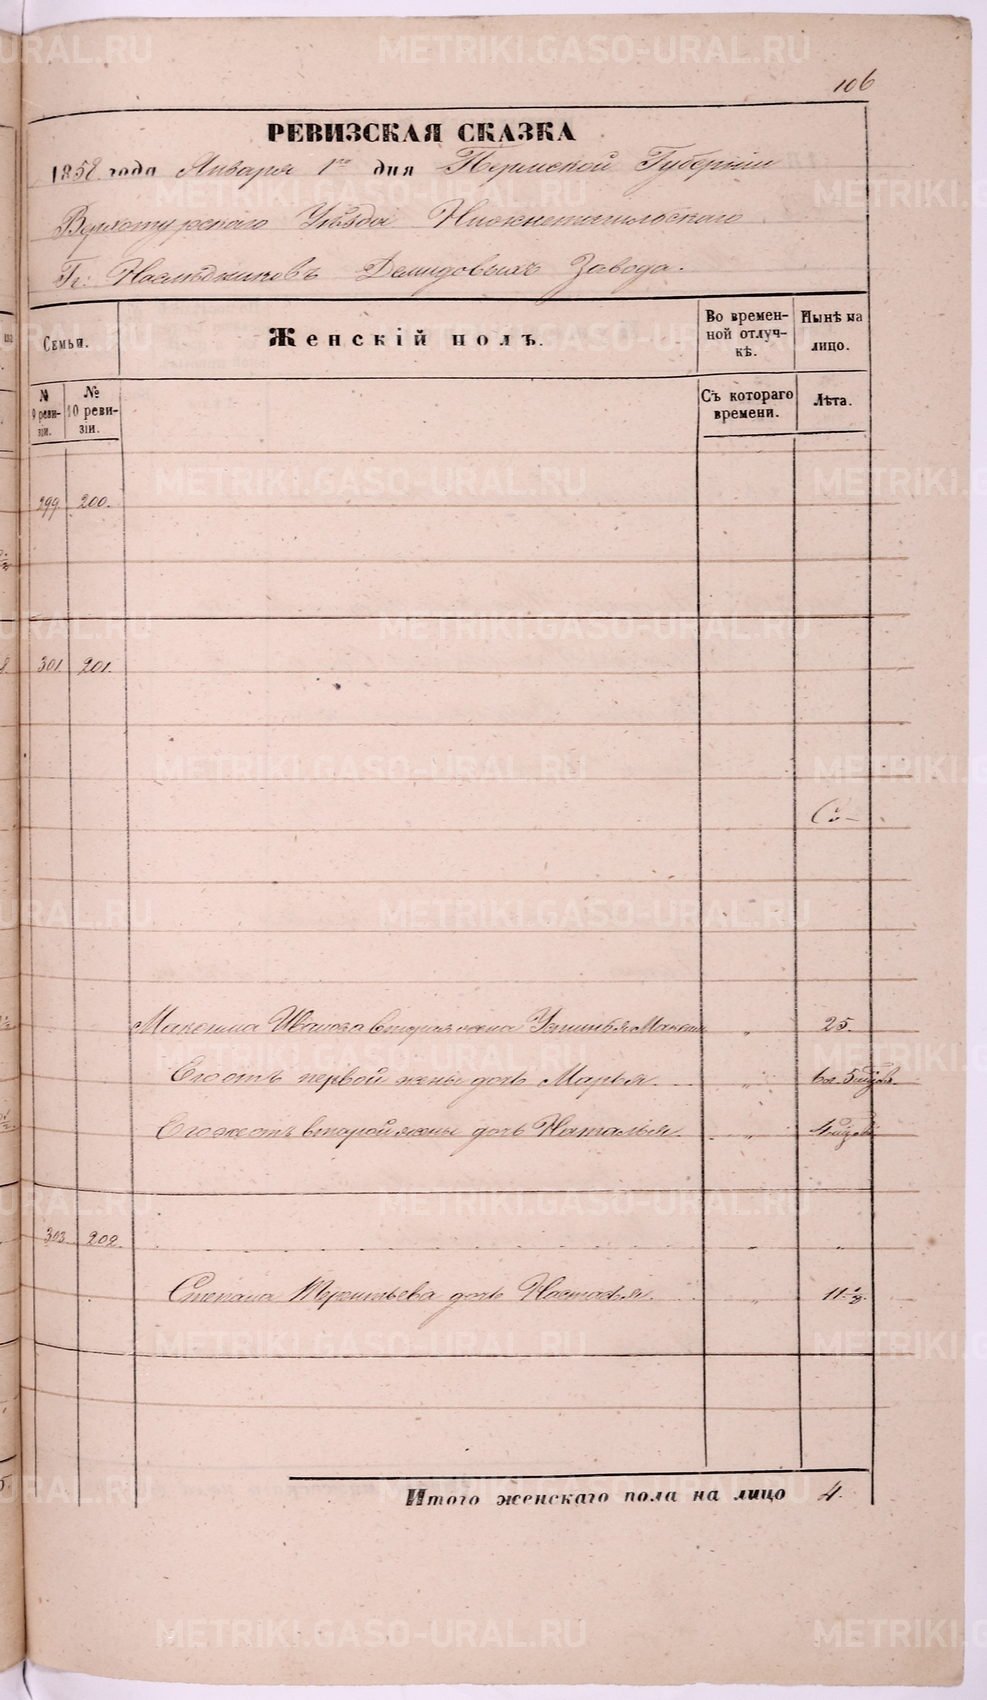 106
РЕВИЗСКАЯ СКАЗКА
1858 года Января 1го дня Пермской Губерніи
Верхотурскаго Уѣзда Нижнетагильскаго
Гг: Наслѣдниковъ Демидовыхъ Завода.
Семьи.
Женскій полъ.
Во времен-
ной отлуч-
кѣ.
Нынѣ на
лицо.
№
9 реви-
зіи.
№
10 реви-
зіи.
Съ котораго
времени.
Лѣта.
299. 200.
301. 201.
Максима Иванова вторая жена " 25.
Его отъ первой жены дочь Марья "
Его же отъ второй жены дочь Наталья "
303. 202. " "
Степана Терентьева дочь Настасья "
Итого женскаго пола на лицо 4.
METRIKI.GASO-URAL.RU